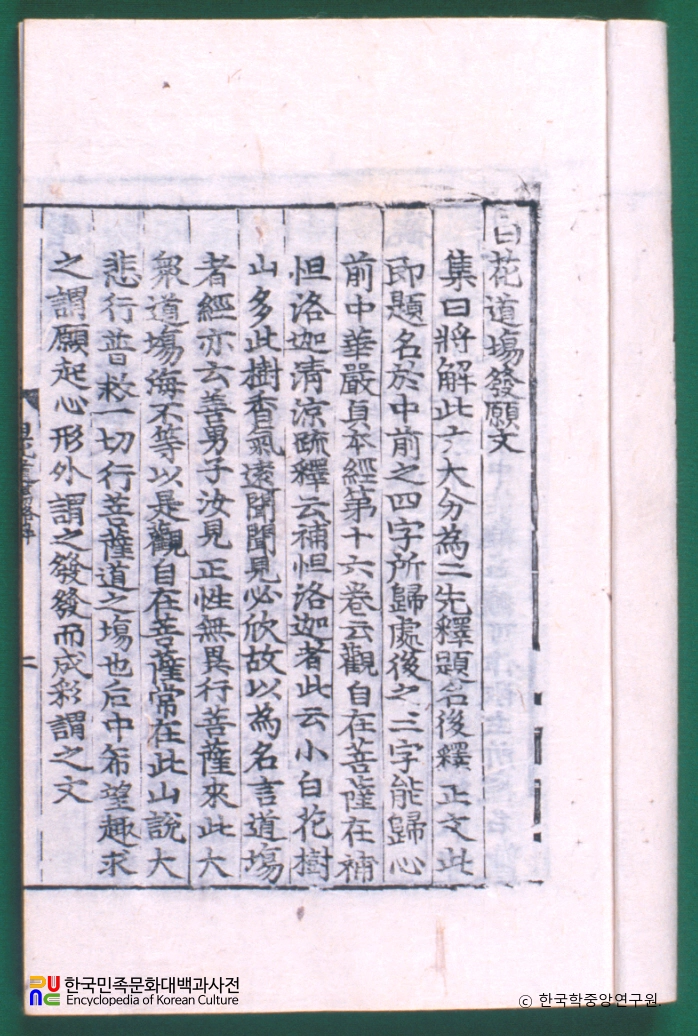 白花道場發願文
集曰將解此文大分為二先釋題名後釋正文此
即題名於中前之四字所歸處後之三字能歸心
前中華嚴貞本經第十六卷云觀自在菩薩在補
怛洛迦清涼䟽釋云補怛洛迦者此云小白花樹
山多此樹香氣遠聞聞見必欣故以為名言道場
者經亦云善男子汝見正性無異行菩薩來此大
衆道場海不等以是觀自在菩薩常在此山說大
悲行普救一切行菩薩道之場也后中希望趣求
之謂願起心形外謂之發發而成彩謂之文
二
한국민족문화대백과사전
Encyclopedia of Korean Culture
ⓒ 한국학중앙연구원.